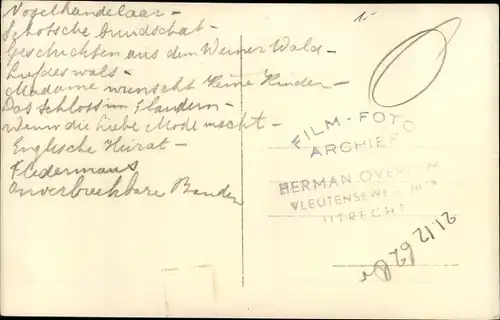 Vogelhandelaar-
Schotsche Bruidschat-
Geschichten aus dem Wener Wald-
Liefdeswals-
Madame wünscht Keine Kinder-
Das Schloss im Flandern-
Wenn die Liebe Mode macht-
Englische Heirat-
Fledermaus
Onverbreekbare Banden
1-
FILM-FOTO
ARCHIEF
HERMAN
VLEUTENSEWE
UTRECHT
21/2 62